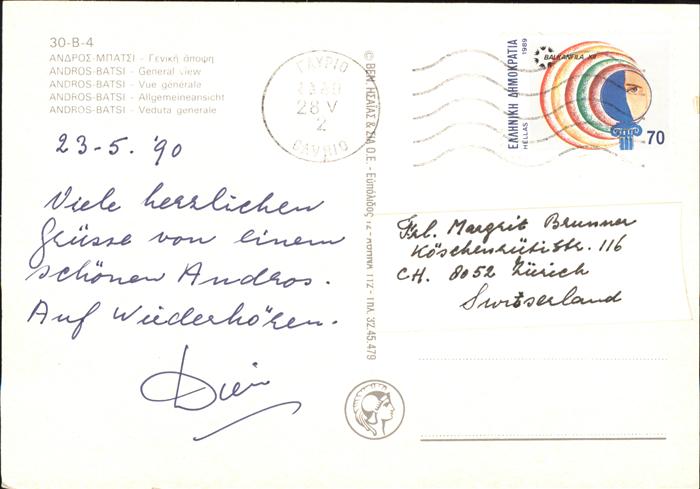 30-B-4
ΑΝΔΡΟΣ-ΜΠΑΤΣΙ - Γενική άποψη
ANDROS-BATSI - General view
ANDROS-BATSI - Vue generale
ANDROS-BATSI - Allgemeineansicht
ANDROS-BATSI - Veduta generale
23-5. '90
Viele herzlichen
Grüsse von einem
schönen Andros.
Auf Wiederhören.
ΓΑΥΡΙΟ
28 V
2
GAVRIO
© ΒΕΗ ΗΣΑΪΑΣ & ΣΙΑ Ο.Ε. - Εὐπόλιδος 12 - ΑΘΗΝΑ 112 - Τηλ. 32.45.479
ΕΛΛΗΝΙΚΗ ΔΗΜΟΚΡΑΤΙΑ
HELLAS
1989
BALKANFILA XII
70
Frl. Margrit Brunner
Köschenrütistr. 116
CH. 8052 Zürich
Switserland